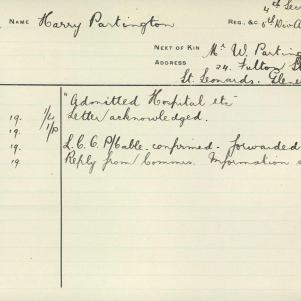 4th
NAME Harry Partington REG. &C. 6th Div A
NEXT OF KIN Mr W. Parting
ADDRESS 24. Fulton St
St. Leonards. Glene
"Admitted Hospital etc"
19. Letter acknowledged.
19. L.C.C. P/Cable. confirmed. forwarded
19 Reply from Commis. Information s